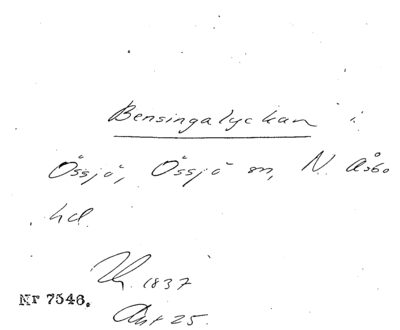 Bensingalyckan i
Össjö, Össjö sn, N. Åsbo
hd.
Lh. 1837
Nr 7546.
Akt 25.